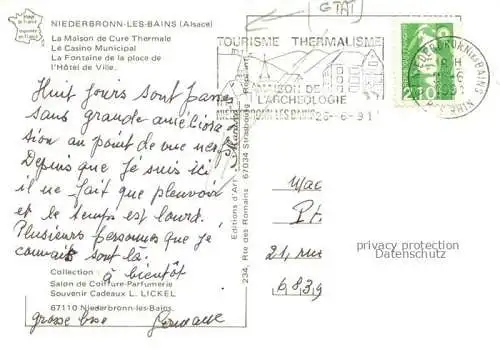 NIEDERBRONN-LES-BAINS (Alsace)
La Maison de Cure Thermale
Le Casino Municipal
La Fontaine de la place de
l'Hôtel de Ville.
(GTAT)
TOURISME THERMALISME
MAISON DE
L'ARCHEOLOGIE
NIEDERBRONN LES BAINS
26-6-91
2,10
Huit jours sont passés
sans grande améliora
sion au point de vue nerf
Depuis que je suis ici
il ne fait que pleuvoir
et le temps est lourd.
Plusieurs personnes que je
connais sont là.
à bientôt
grosse bise
Editions d'Art
234, Rte des Romains 67034 Strasbourg
Collection :
Salon de Coiffure-Parfumerie
Souvenir Cadeaux L. LICKEL
67110 Niederbronn-les-Bains.
21, rue
6839
privacy protection
Datenschutz